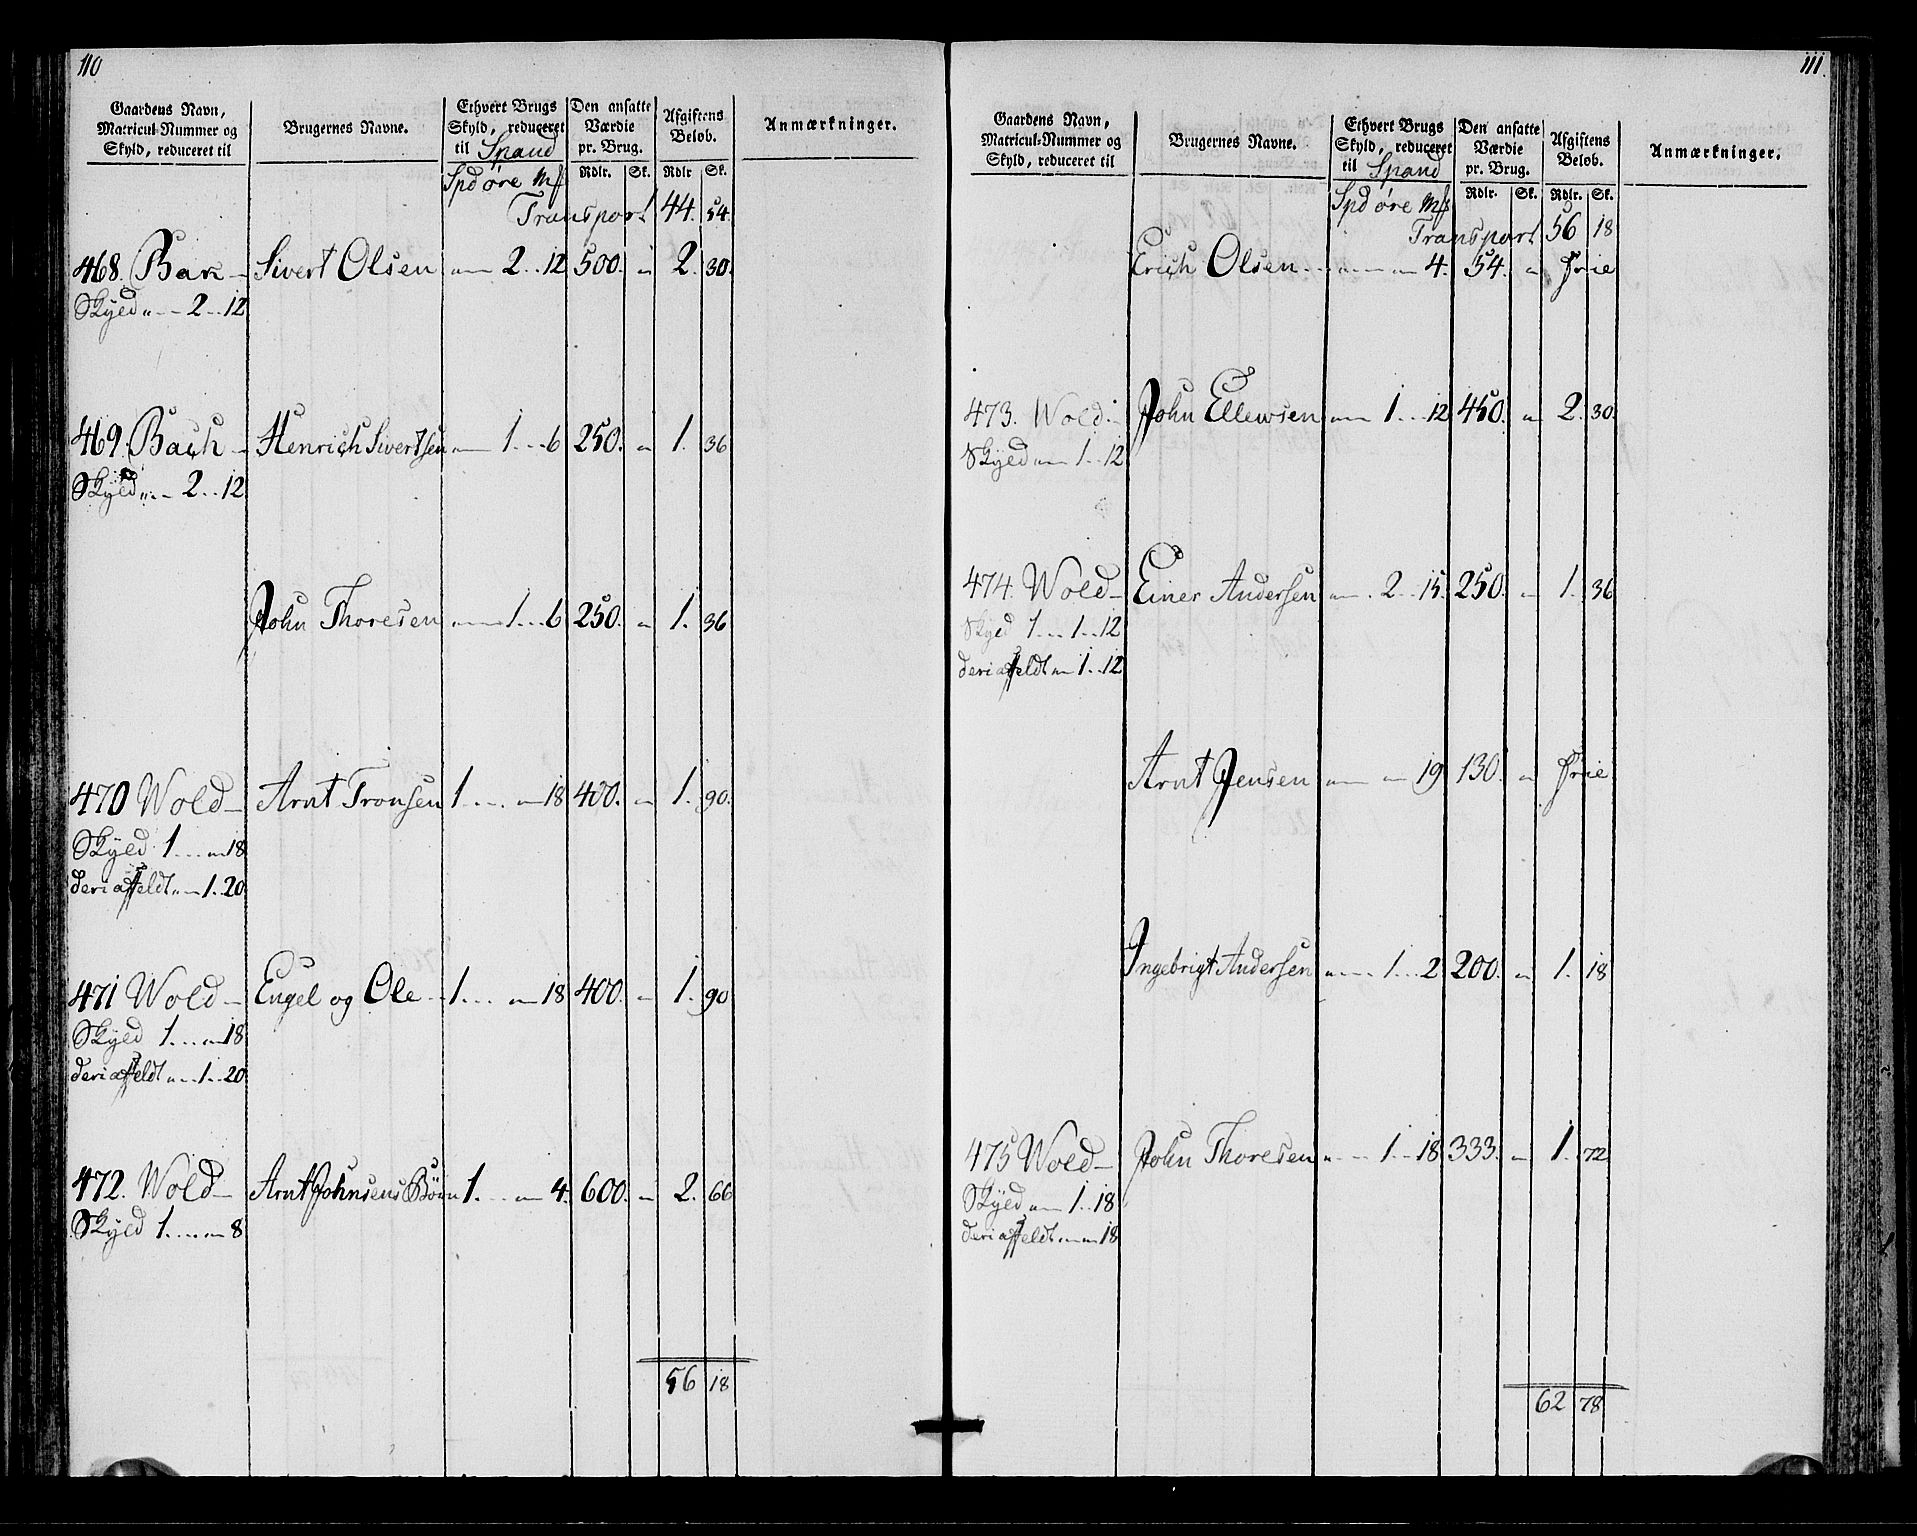 110
Gaardens Navn, Matricul-Nummer og Skyld, reduceret til
Brugernes Navne.
Ethvert Brugs Skyld, reduceret til Spand
Den ansatte Værdie pr. Brug.
Afgiftens Beløb.
Anmærkninger.
Spd øre Mk Rdlr. Sk. Rdlr Sk.
Transport 44. 54.
468. Bak — Sivert Olsen „ — 2 .. 12 500. „ 2. 30.
Skyld „ . — 2 .. 12
469. Bach — Henrich Sivertsen „ — 1 ... 6 250. „ 1. 36
Skyld „ . — 2 .. 12
John Thoresen „ — 1 ... 6 250. „ 1. 36
470 Wold — Arnt Tronsen 1 .... „ 18 400. „ 1. 90.
Skyld 1 .... „ 18
deri affeldt „ — 1 .. 20
471 Wold — Engel og Ole — 1 .... „ 18 400. „ 1. 90
Skyld 1 .... „ 18
deri affeldt „ .. 1 .. 20
472. Wold — Arnt Johnsens Børn 1 .... „ 4. 600. „ 2. 66
Skyld 1 ..... „ 8
56 18
111.
Gaardens Navn, Matricul-Nummer og Skyld, reduceret til
Brugernes Navne.
Ethvert Brugs Skyld, reduceret til Spand
Den ansatte Værdie pr. Brug.
Afgiftens Beløb.
Anmærkninger.
Spd øre Mk Rdlr. Sk. Rdlr. Sk.
Transport 56 18
Erich Olsen .. „ — „ 4. 54. „ frie
473. Wold .. John Ellewsen „ — 1 ... 12 450. „ 2. 30.
Skyld „ — 1 .. 12
474. Wold — Einer Andersen „ . 2 .. 15. 250. „ 1. 36
Skyld 1 ... 1 .. 12
deri affeldt „ 1 .. 12
Arnt Jensen „ — „ 19 130. „ frie
Ingebrigt Andersen „ ... 1 ... 2 200. „ 1. 18
475 Wold — John Thoresen „ ... 1 ... 18 333. „ 1. 72
Skyld „ — 1 .. 18
deri affeldt „ — „ 18
62 78